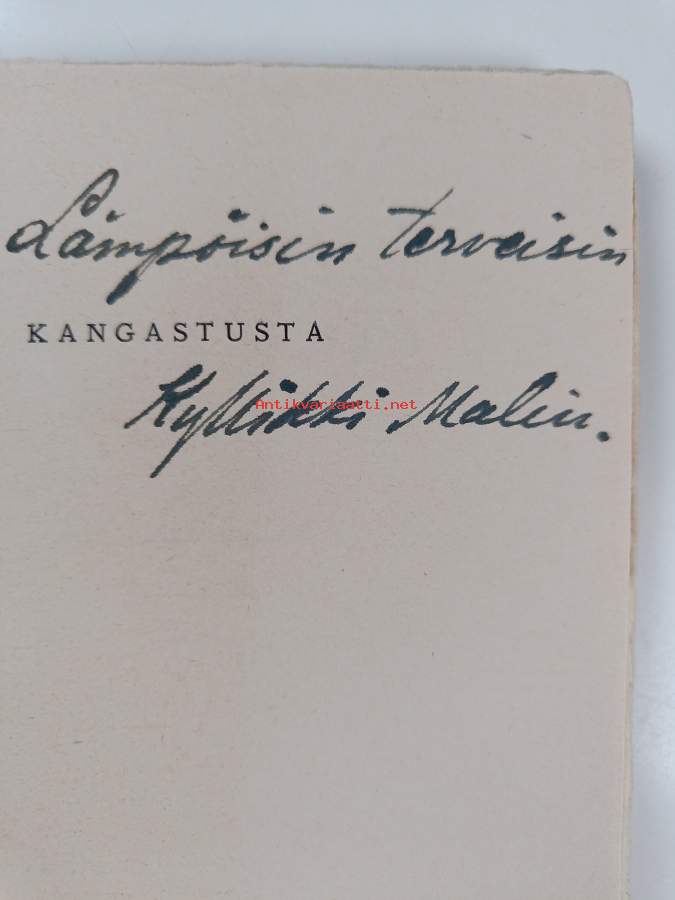 Lämpöisin terveisin
KANGASTUSTA
Antikvariaatti.net
Kyllikki Malin.